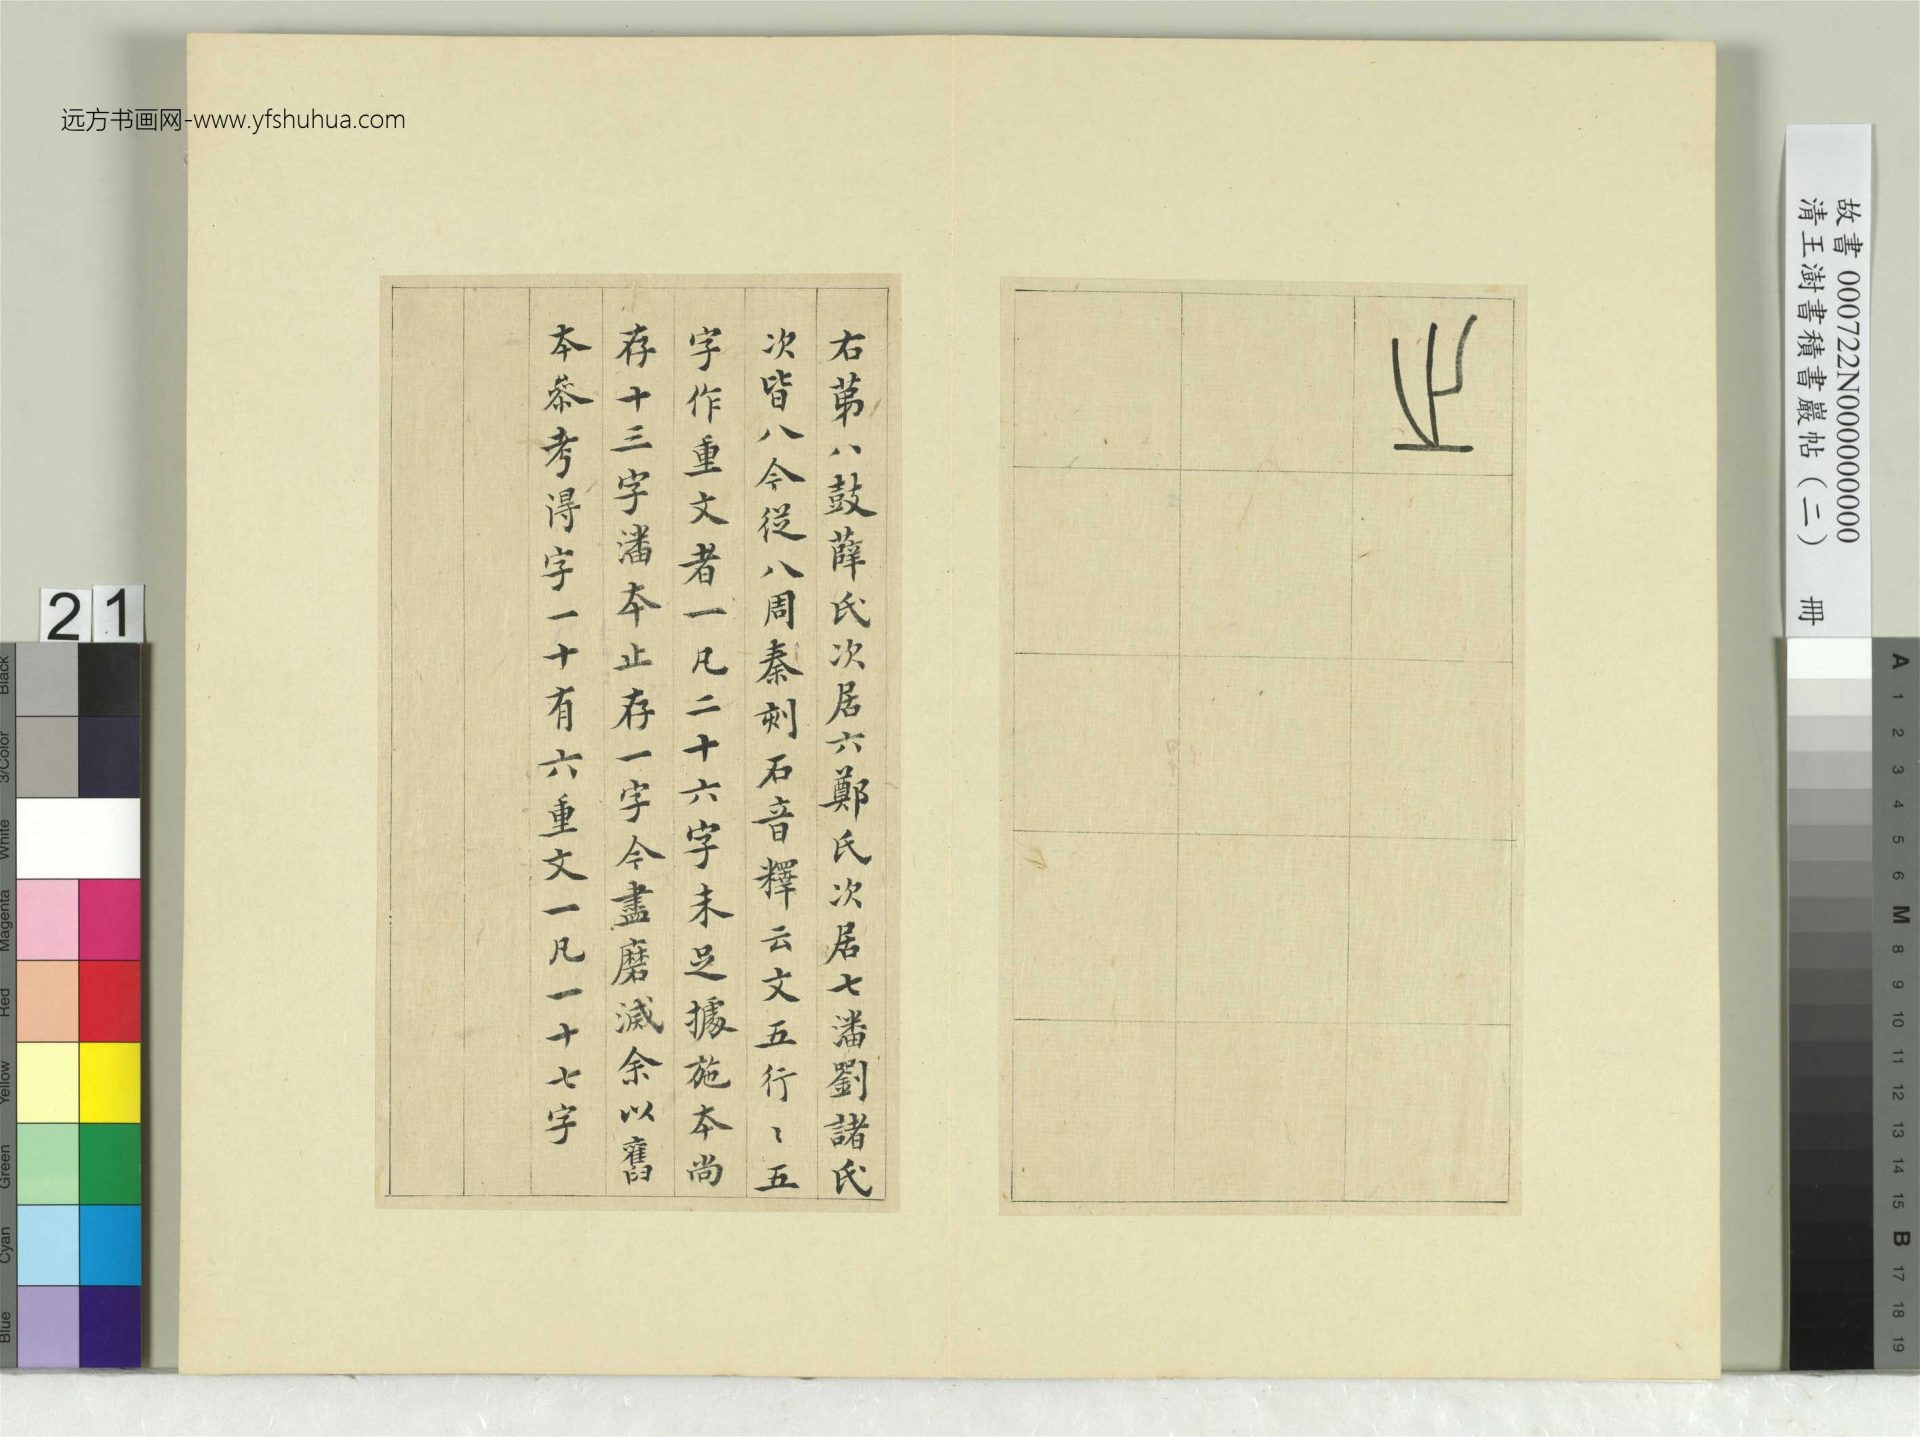 远方书画网-www.yfshuhua.com
故書 000722N000000000
清王澍書積書巖帖（二） 冊
止
右苐八鼓薛氏次居六鄭氏次居七潘劉諸氏
次皆八今從八周秦刻石音釋云文五行〻五
字作重文者一凡二十六字未足據施本尚
存十三字潘本止存一字今盡磨滅余以舊
本叅考得字一十有六重文一凡一十七字
21
Black
3/Color
White
Magenta
Red
Yellow
Green
Cyan
Blue
A
1
2
3
4
5
6
M
8
9
10
11
12
13
14
15
B
17
18
19